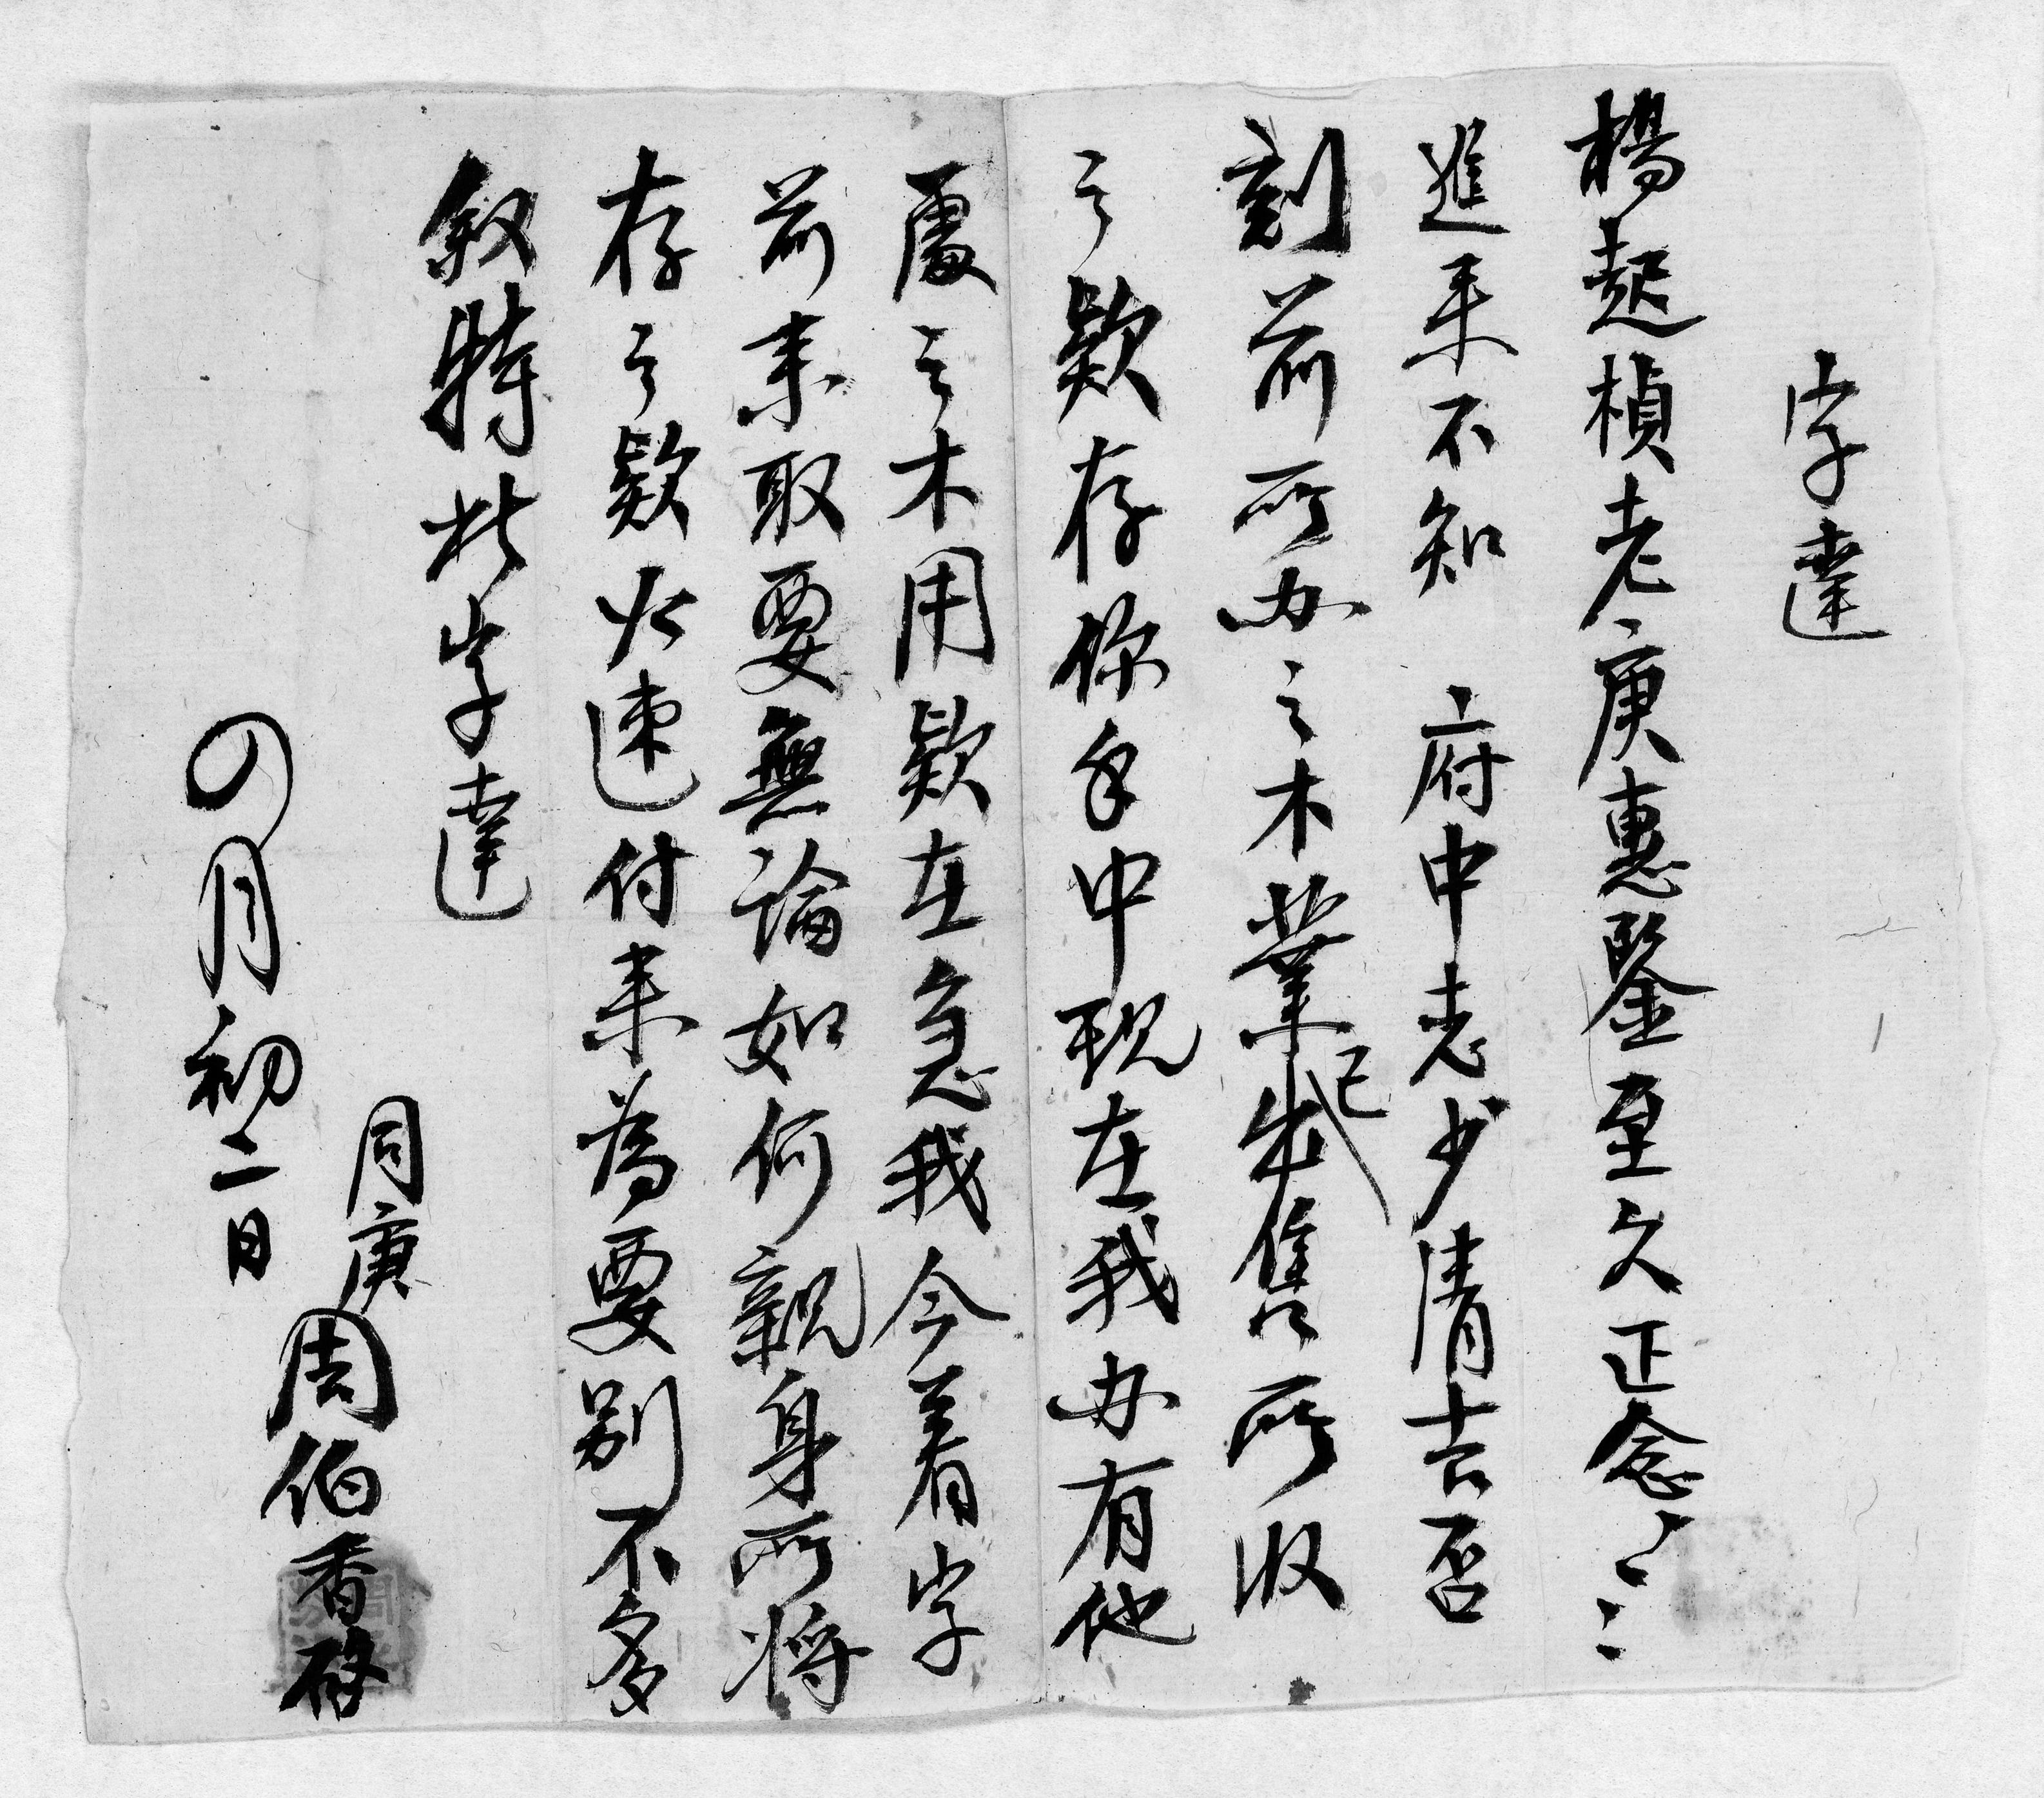 字達
楊起楨老庚惠鑒至久正念〻〻
進来不知 府中老少清吉否
刻前所办之木業已出售所收
之欵存你手中現在我办有他
處之木用欵在急我今着字
前来取要無論如何親身所将
存之欵火速付来為要别不多
叙特此字達
同庚周伯香啓
四月初二日